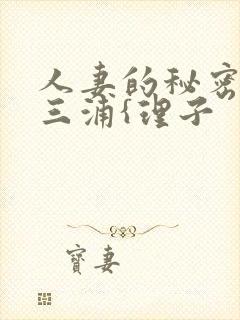 人妻的秘密
三浦{理子
寶妻